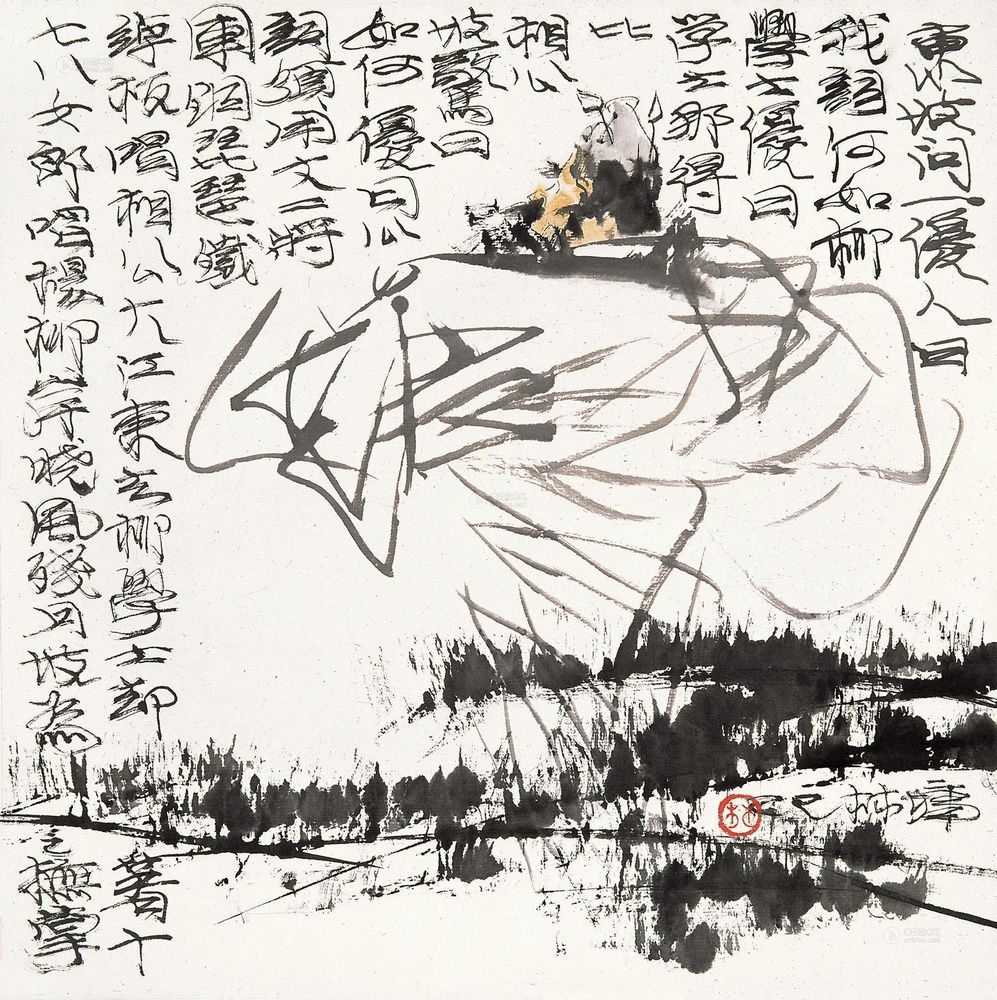 東坡问一優人曰
我詞何如柳
學士優曰
学士那得
比
相公
坡驚曰
如何優曰公
詞須用丈二將
軍銅琵琶鐵
綽板唱相公大江東去柳學士却著十
七八女郎唱楊柳岸曉風殘月坡為之撫掌
林墉